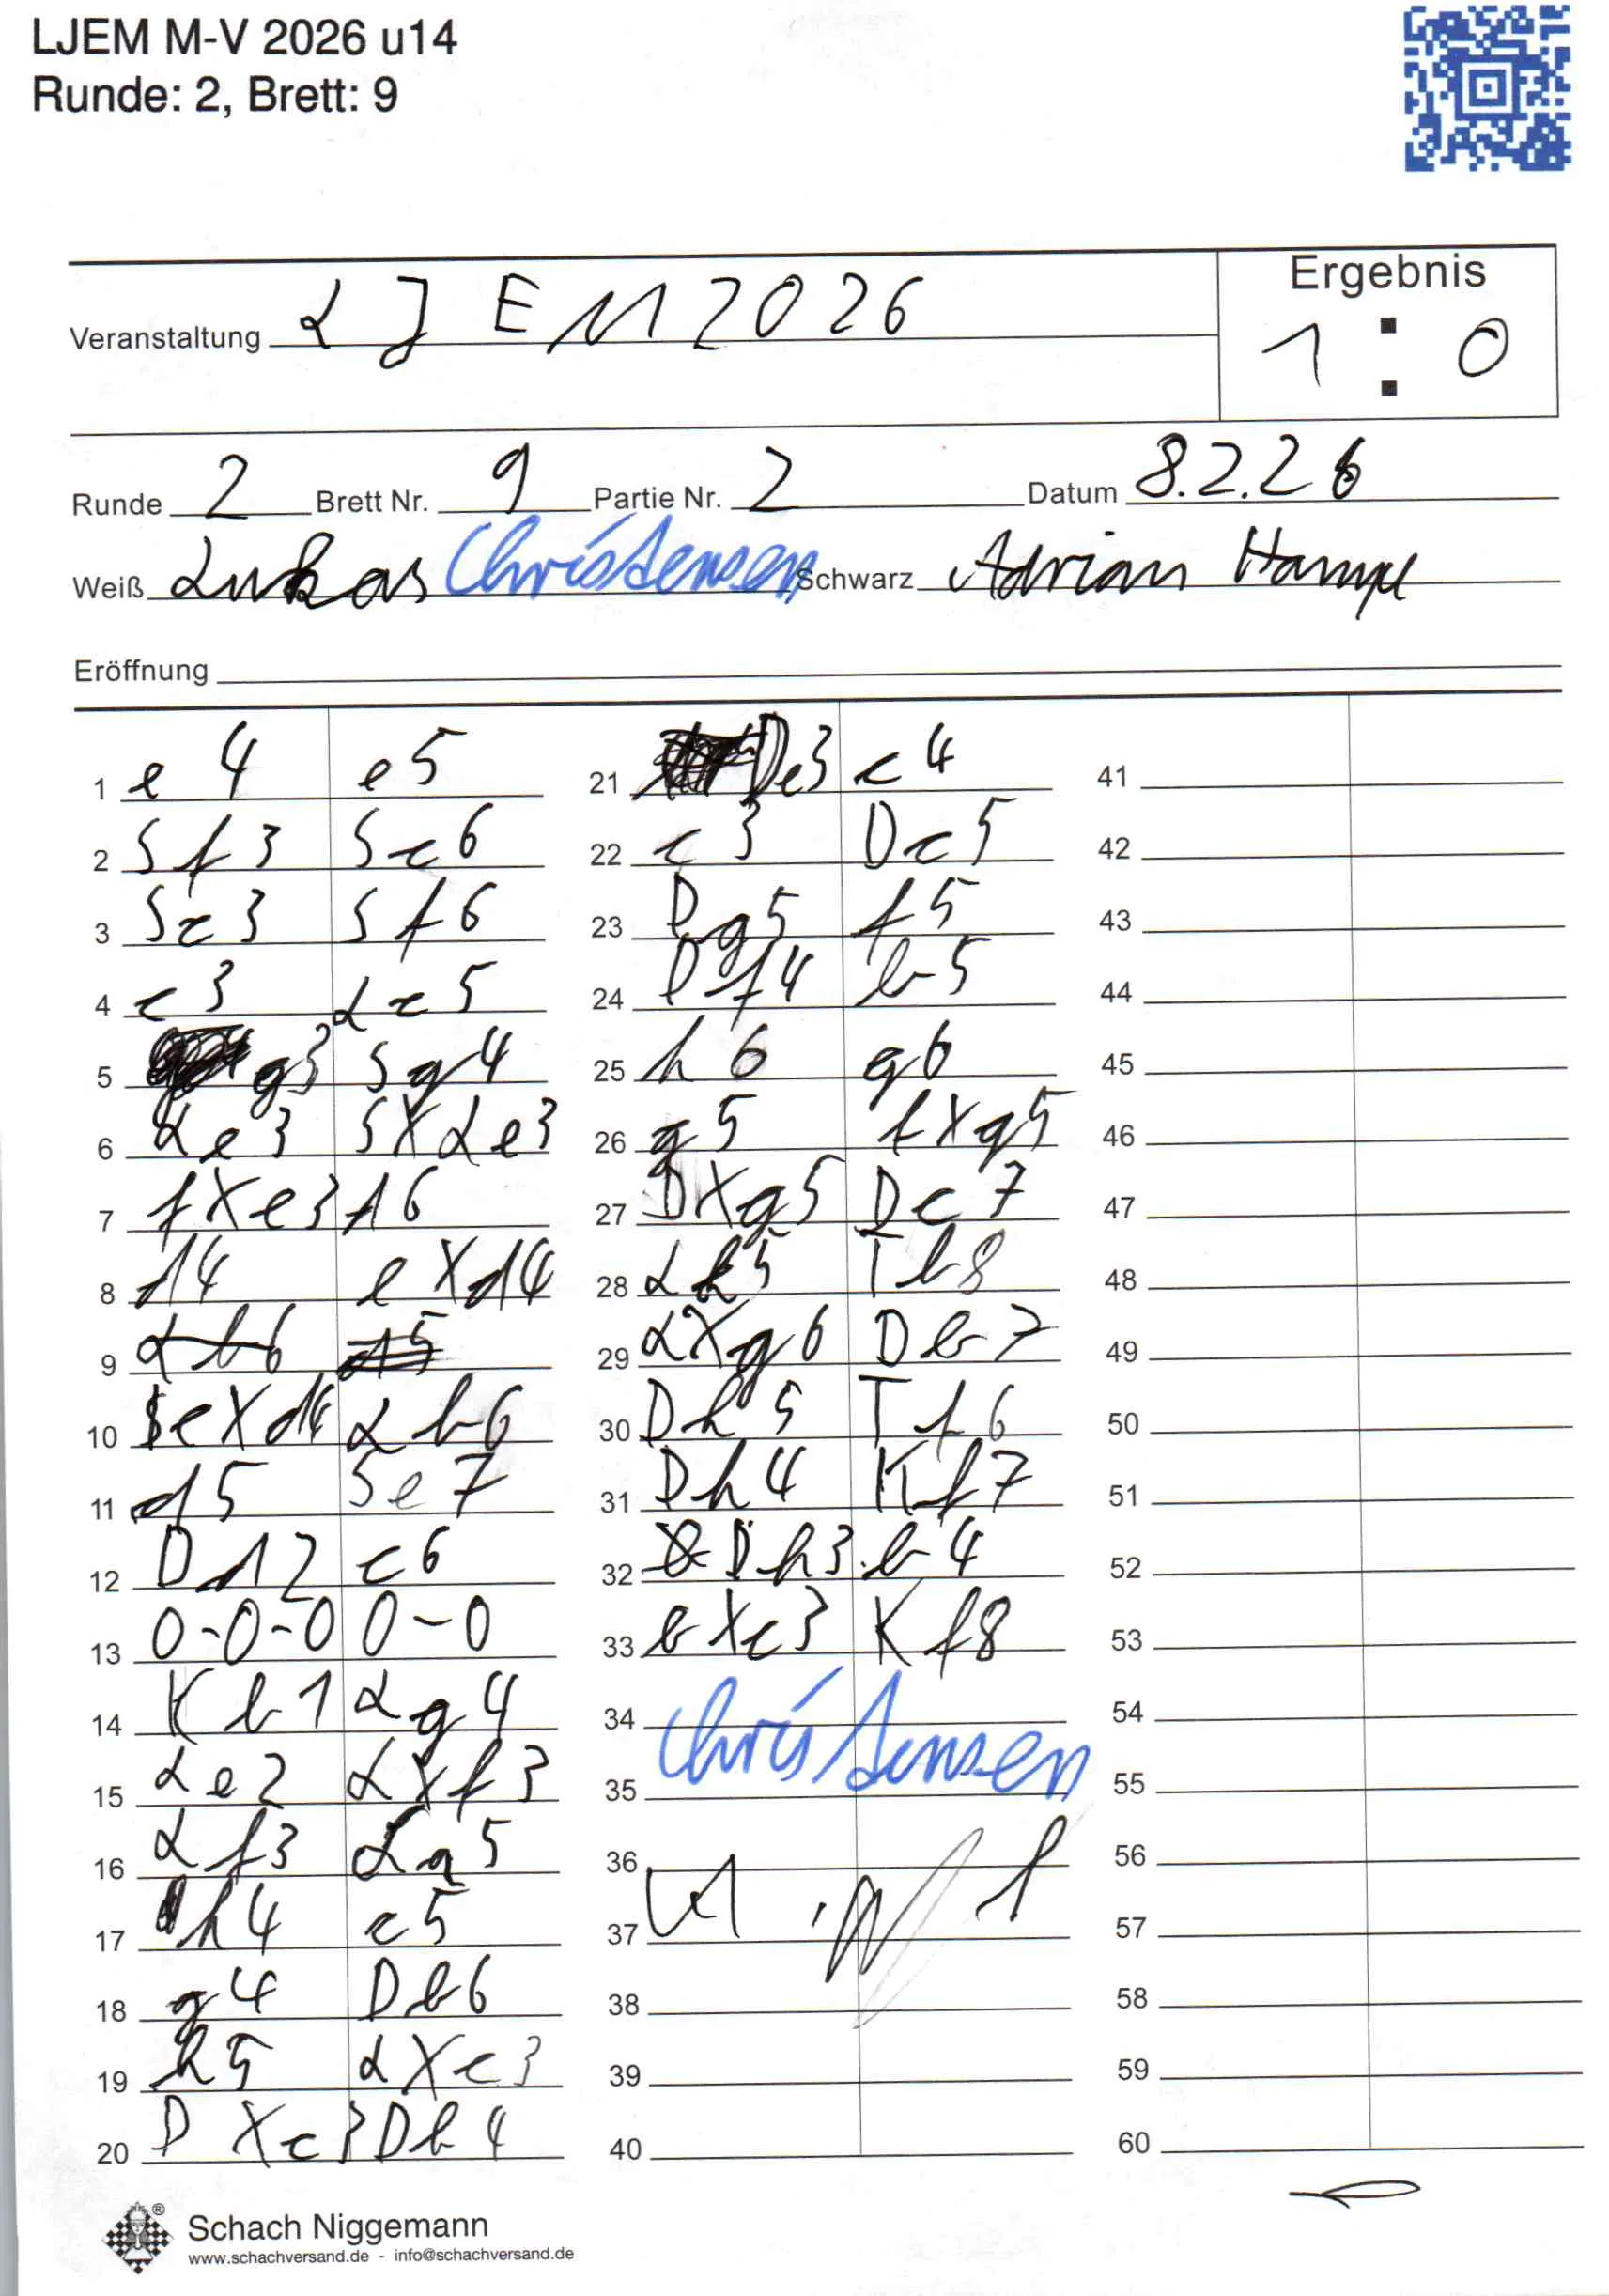 LJEM M-V 2026 u14
Runde: 2, Brett: 9
Veranstaltung LJEM 2026
Ergebnis
1 : 0
Runde 2 Brett Nr. 9 Partie Nr. 2 Datum 8.2.26
Weiß Lukas Christensen Schwarz Adrian Hampe
Eröffnung
1 e4 e5 21 De3 c4 41
2 Sf3 Sc6 22 c3 Dc5 42
3 Sc3 Sf6 23 Dg5 f5 43
4 c3 Lc5 24 Df4 b5 44
5 g3 Sg4 25 h6 g6 45
6 Le3 SXLe3 26 g5 fXg5 46
7 fXe3 d6 27 DXg5 Dc7 47
8 d4 eXd4 28 Lh5 Tb8 48
9 Lb6 d5 29 LXg6 Db7 49
10 eXd4 Lb6 30 Dh5 Tf6 50
11 d5 Se7 31 Dh4 Kf7 51
12 Dd2 c6 32 Dh3 b4 52
13 0-0-0 0-0 33 bXc3 Kf8 53
14 Kb1 Lg4 34 Christensen 54
15 Le2 LXf3 35 55
16 Lf3 La5 36 56
17 h4 c5 37 57
18 g4 Db6 38 58
19 h5 LXc3 39 59
20 DXc3 Db4 40 60
Schach Niggemann
www.schachversand.de - info@schachversand.de